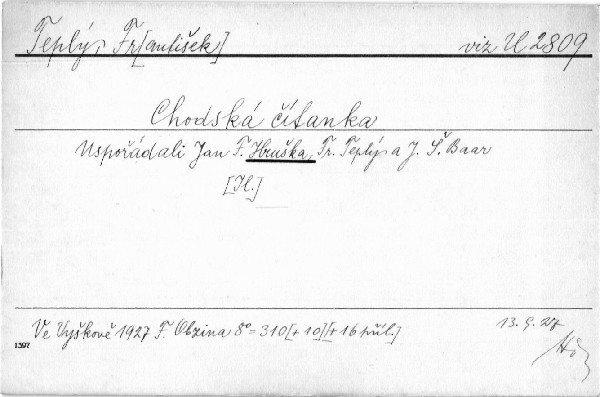 Teplý, Fr[antišek] viz U 2809
Chodská čítanka
Uspořádali Jan F. Hruška, Fr. Teplý a J. Š. Baar
[Il.]
Ve Vyškově 1927 F. Obzina 8° = 310[+10][+16 příl.] 13.9.27
1397